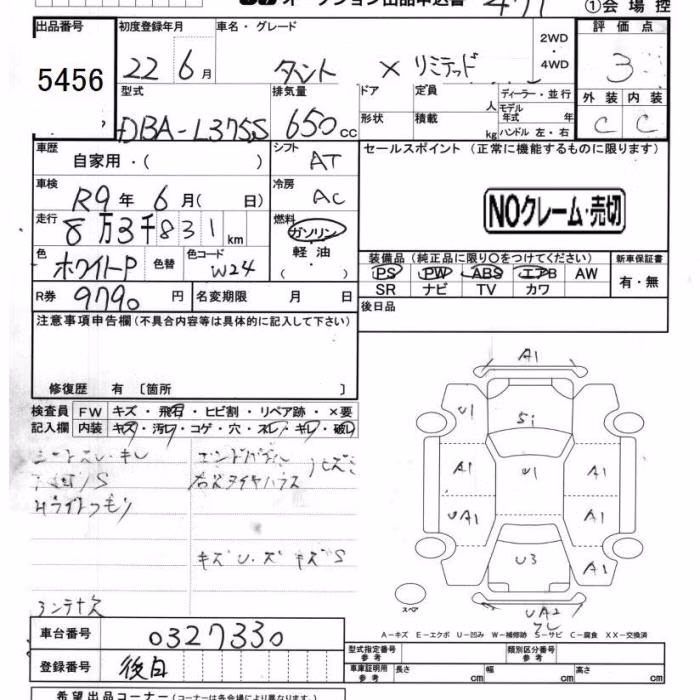 オークション出品申込書 ①会場控
出品番号 初度登録年月 車名・グレード 2WD・4WD 評価点
5456 22年6月 タント × リミテッド 3
型式 排気量 ドア 定員 人 ディーラー・並行 外装 内装
DBA-L375S 650cc 形状 積載 kg モデル年式 年 ハンドル 左・右 C C
車歴 自家用・( ) シフト AT セールスポイント(正常に機能するものに限ります)
車検 R9年6月( 日) 冷房 AC
NOクレーム・売切
走行 8万3千831km 燃料 ガソリン 軽油 ( )
色 ホワイトP 色替 色コード W24
装備品(純正品に限り〇をつけてください) 新車保証書
PS PW ABS エアB AW 有・無
SR ナビ TV カワ
R券 9790円 名変期限 月 日 後日品
注意事項申告欄(不具合内容等は具体的に記入して下さい)
修復歴 有 〔箇所 〕
検査員 FW キズ・飛石・ヒビ割・リペア跡・×要
記入欄 内装 キズ・汚レ・コゲ・穴・スレ・キレ・破レ
シートスレ・キレ
右Rタイヤハウス
Hライトくもり
キズU・ズ キズS
A1
U1 Si
A1 U1 A1
UA1 A1
U3 A1
UA2
スペア
A-キズ E-エクボ U-凹み W-補修跡 S-サビ C-腐食 XX-交換済
車台番号 0327330
登録番号 後日
型式指定番号 参考 類別区分番号 参考
車庫証明用 参考 長さ cm 幅 cm 高さ cm
希望出品コーナー(コーナーは各会場により異なります)